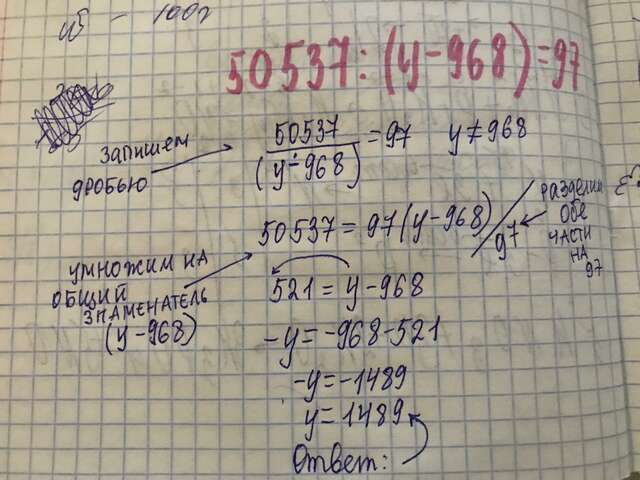 100г
50537:(y-968)=97
запишем дробью
50537/(y-968) = 97 y≠968
50537 = 97(y-968) / 97
разделим
обе
части
на
97
умножим на
общий
знаменатель
(y-968)
521 = y-968
-y=-968-521
-y=-1489
y=1489
Ответ: